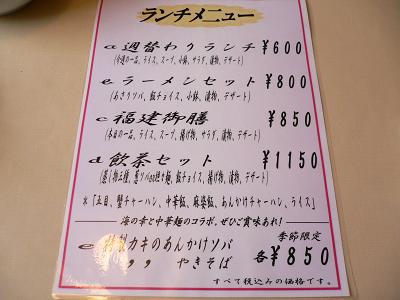 ランチメニュー
a 週替わりランチ ¥600
(今週の一品、ライス、スープ、小鉢、サラダ、漬物、デザート)
e ラーメンセット ¥800
(あさりソバ、飯チョイス、小鉢、漬物、デザート)
c 福建御膳 ¥850
(本日の一品、ライス、スープ、揚げ物、サラダ、漬物、デザート)
d 飲茶セット ¥1150
(蒸し物三種、葱ソバor担々麺、飯チョイス、揚げ物、漬物、デザート)
*「五目、蟹チャーハン、中華飯、麻婆飯、あんかけチャーハン、ライス」
海の幸と中華麺のコラボ、ぜひご賞味あれ!
季節限定
e 特製カキのあんかけソバ
〃 〃 やきそば 各¥850
すべて税込みの価格です。